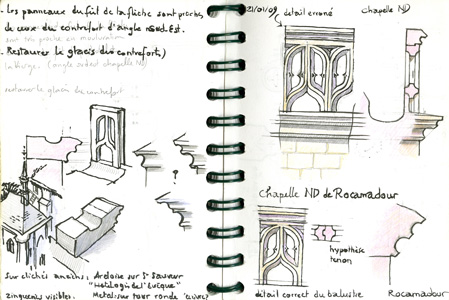 - Les panneaux du fût de la flèche sont proches
de ceux du contrefort d'angle Nord-Est.
- Restaurer le glacis du contrefort,
la Vierge. (angle ardent chapelle ND)
restaurer le glacis du contrefort
Sur clichés anciens: Ardoise sur St Sauveur
Métal sur tour ronde
zingueries visibles.
21/01/09
détail erroné
Chapelle ND
Chapelle ND de Rocamadour
hypothèse
tenon
détail correct du balustre
Rocamadour